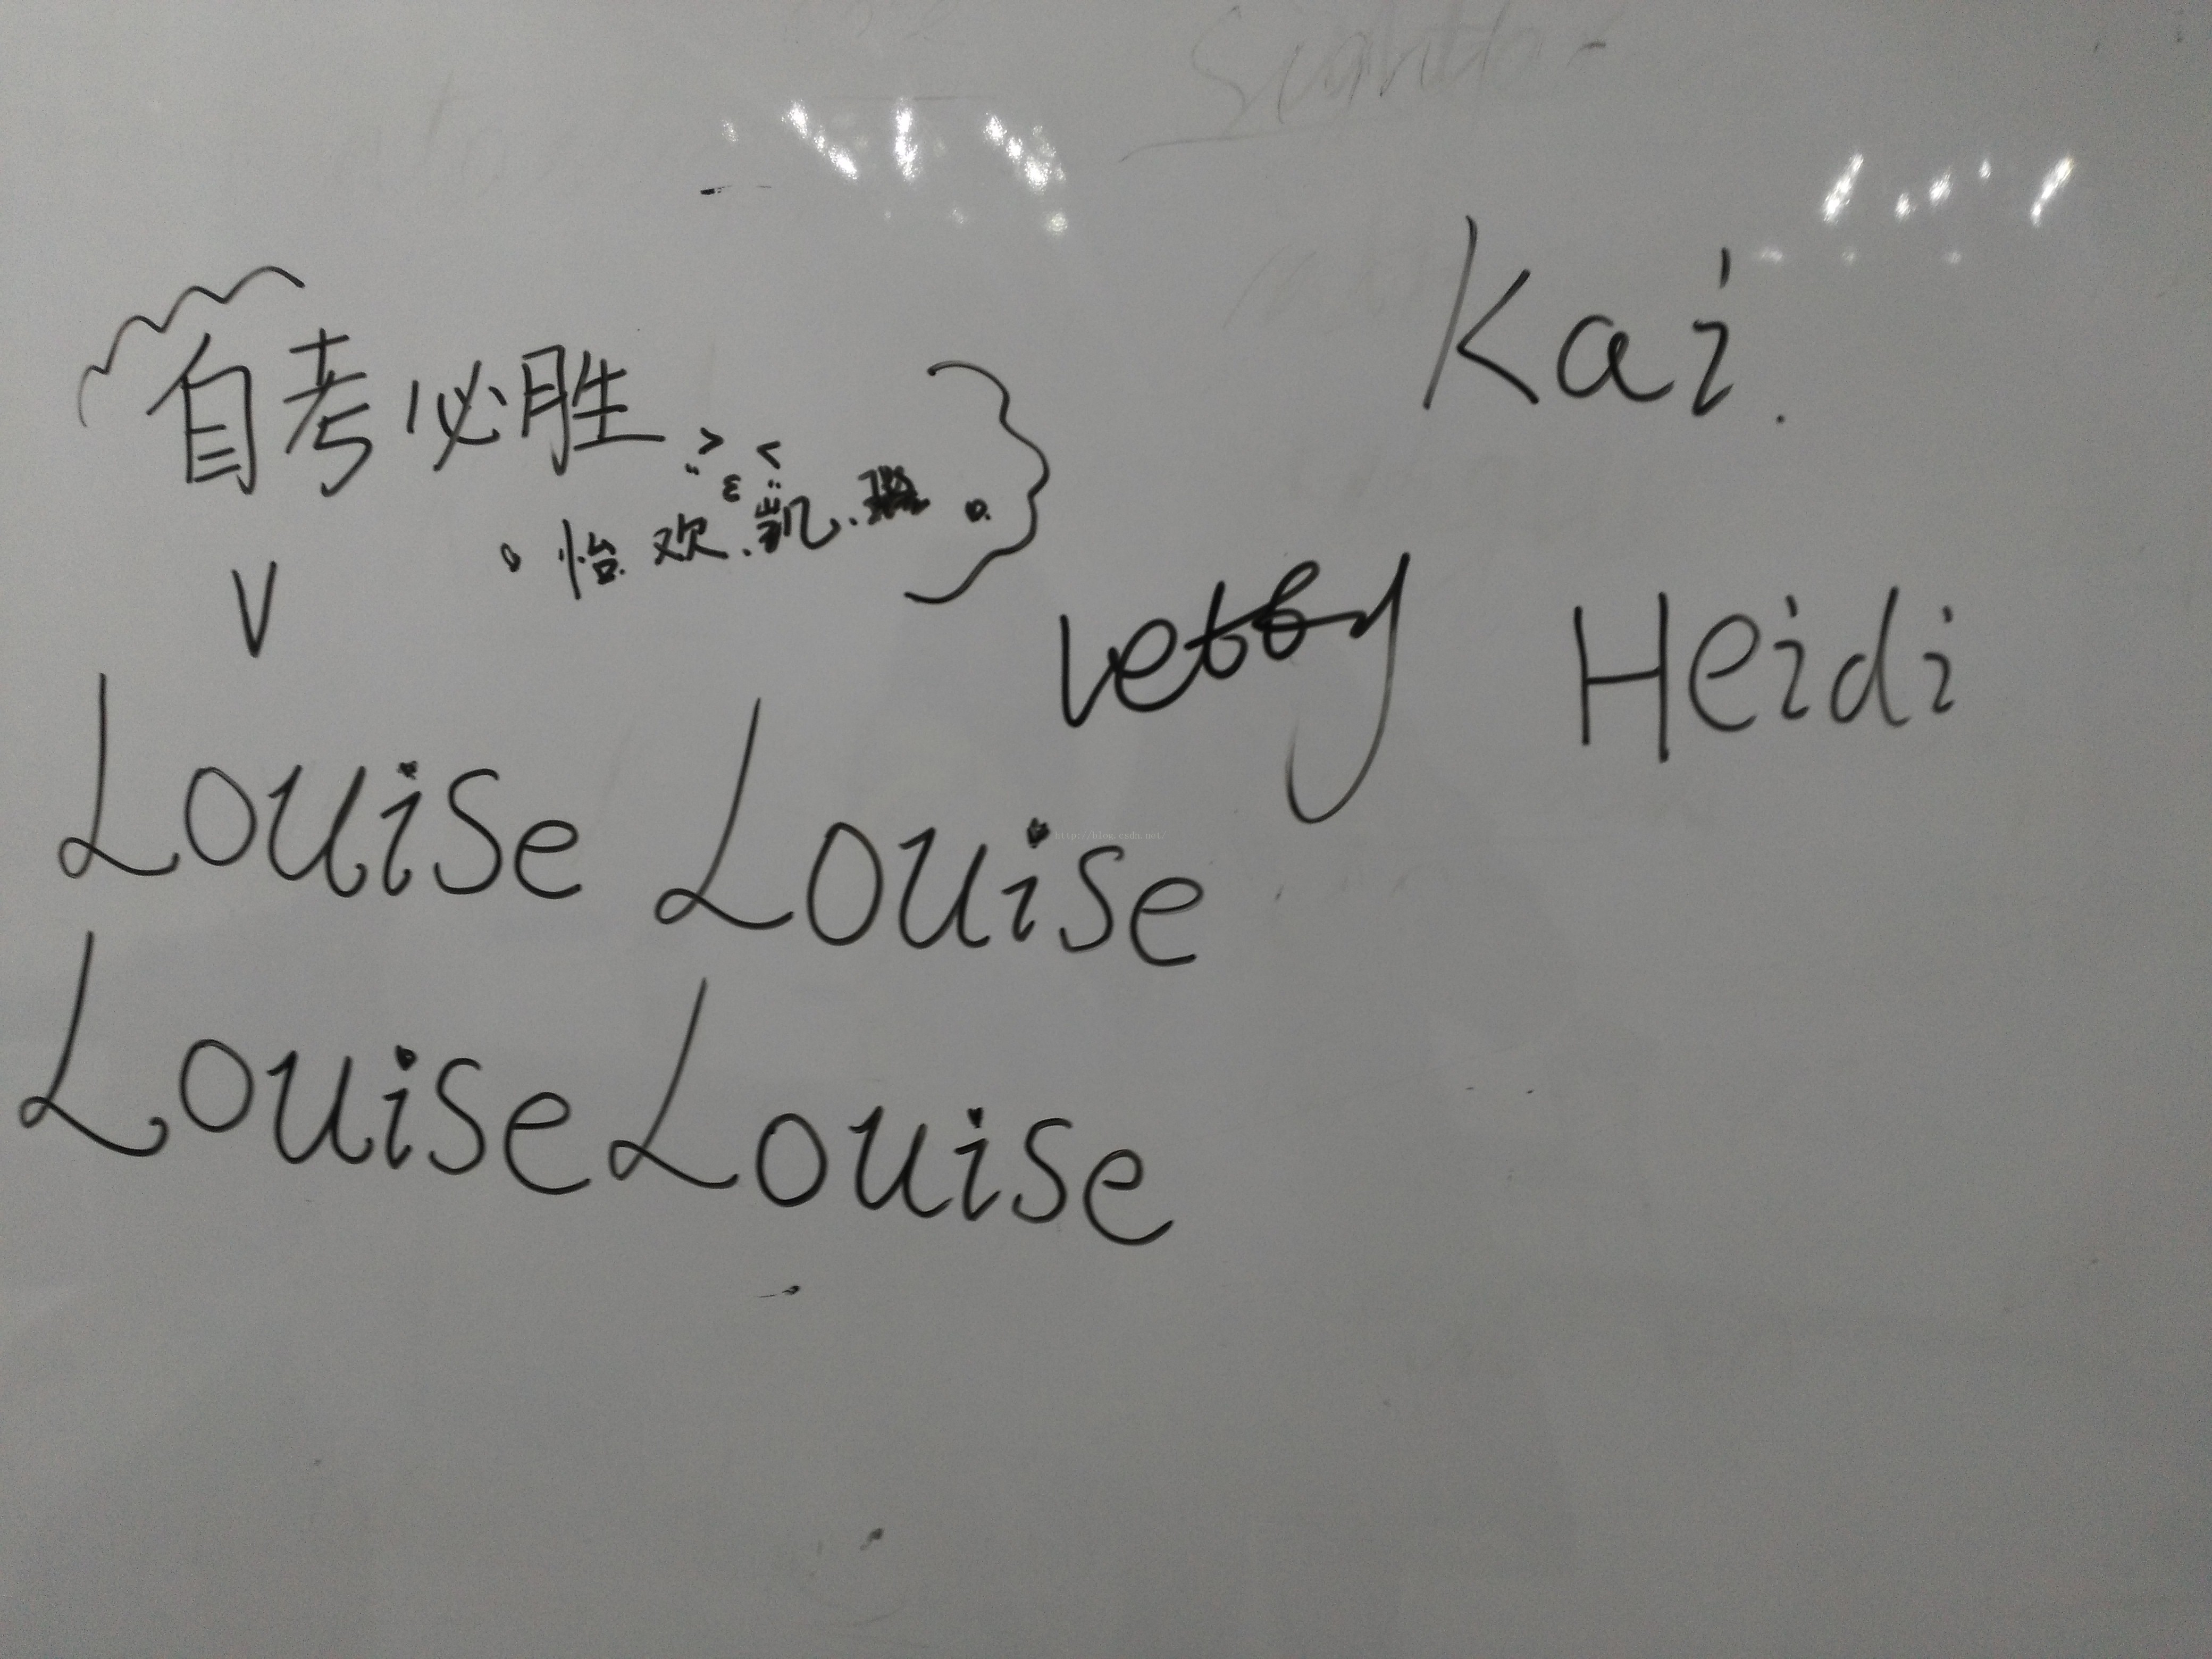 Kai.
自考必胜
怡欢.凯.
V
Heidi
Louise Louise
http://blog.csdn.net/
Louise Louise